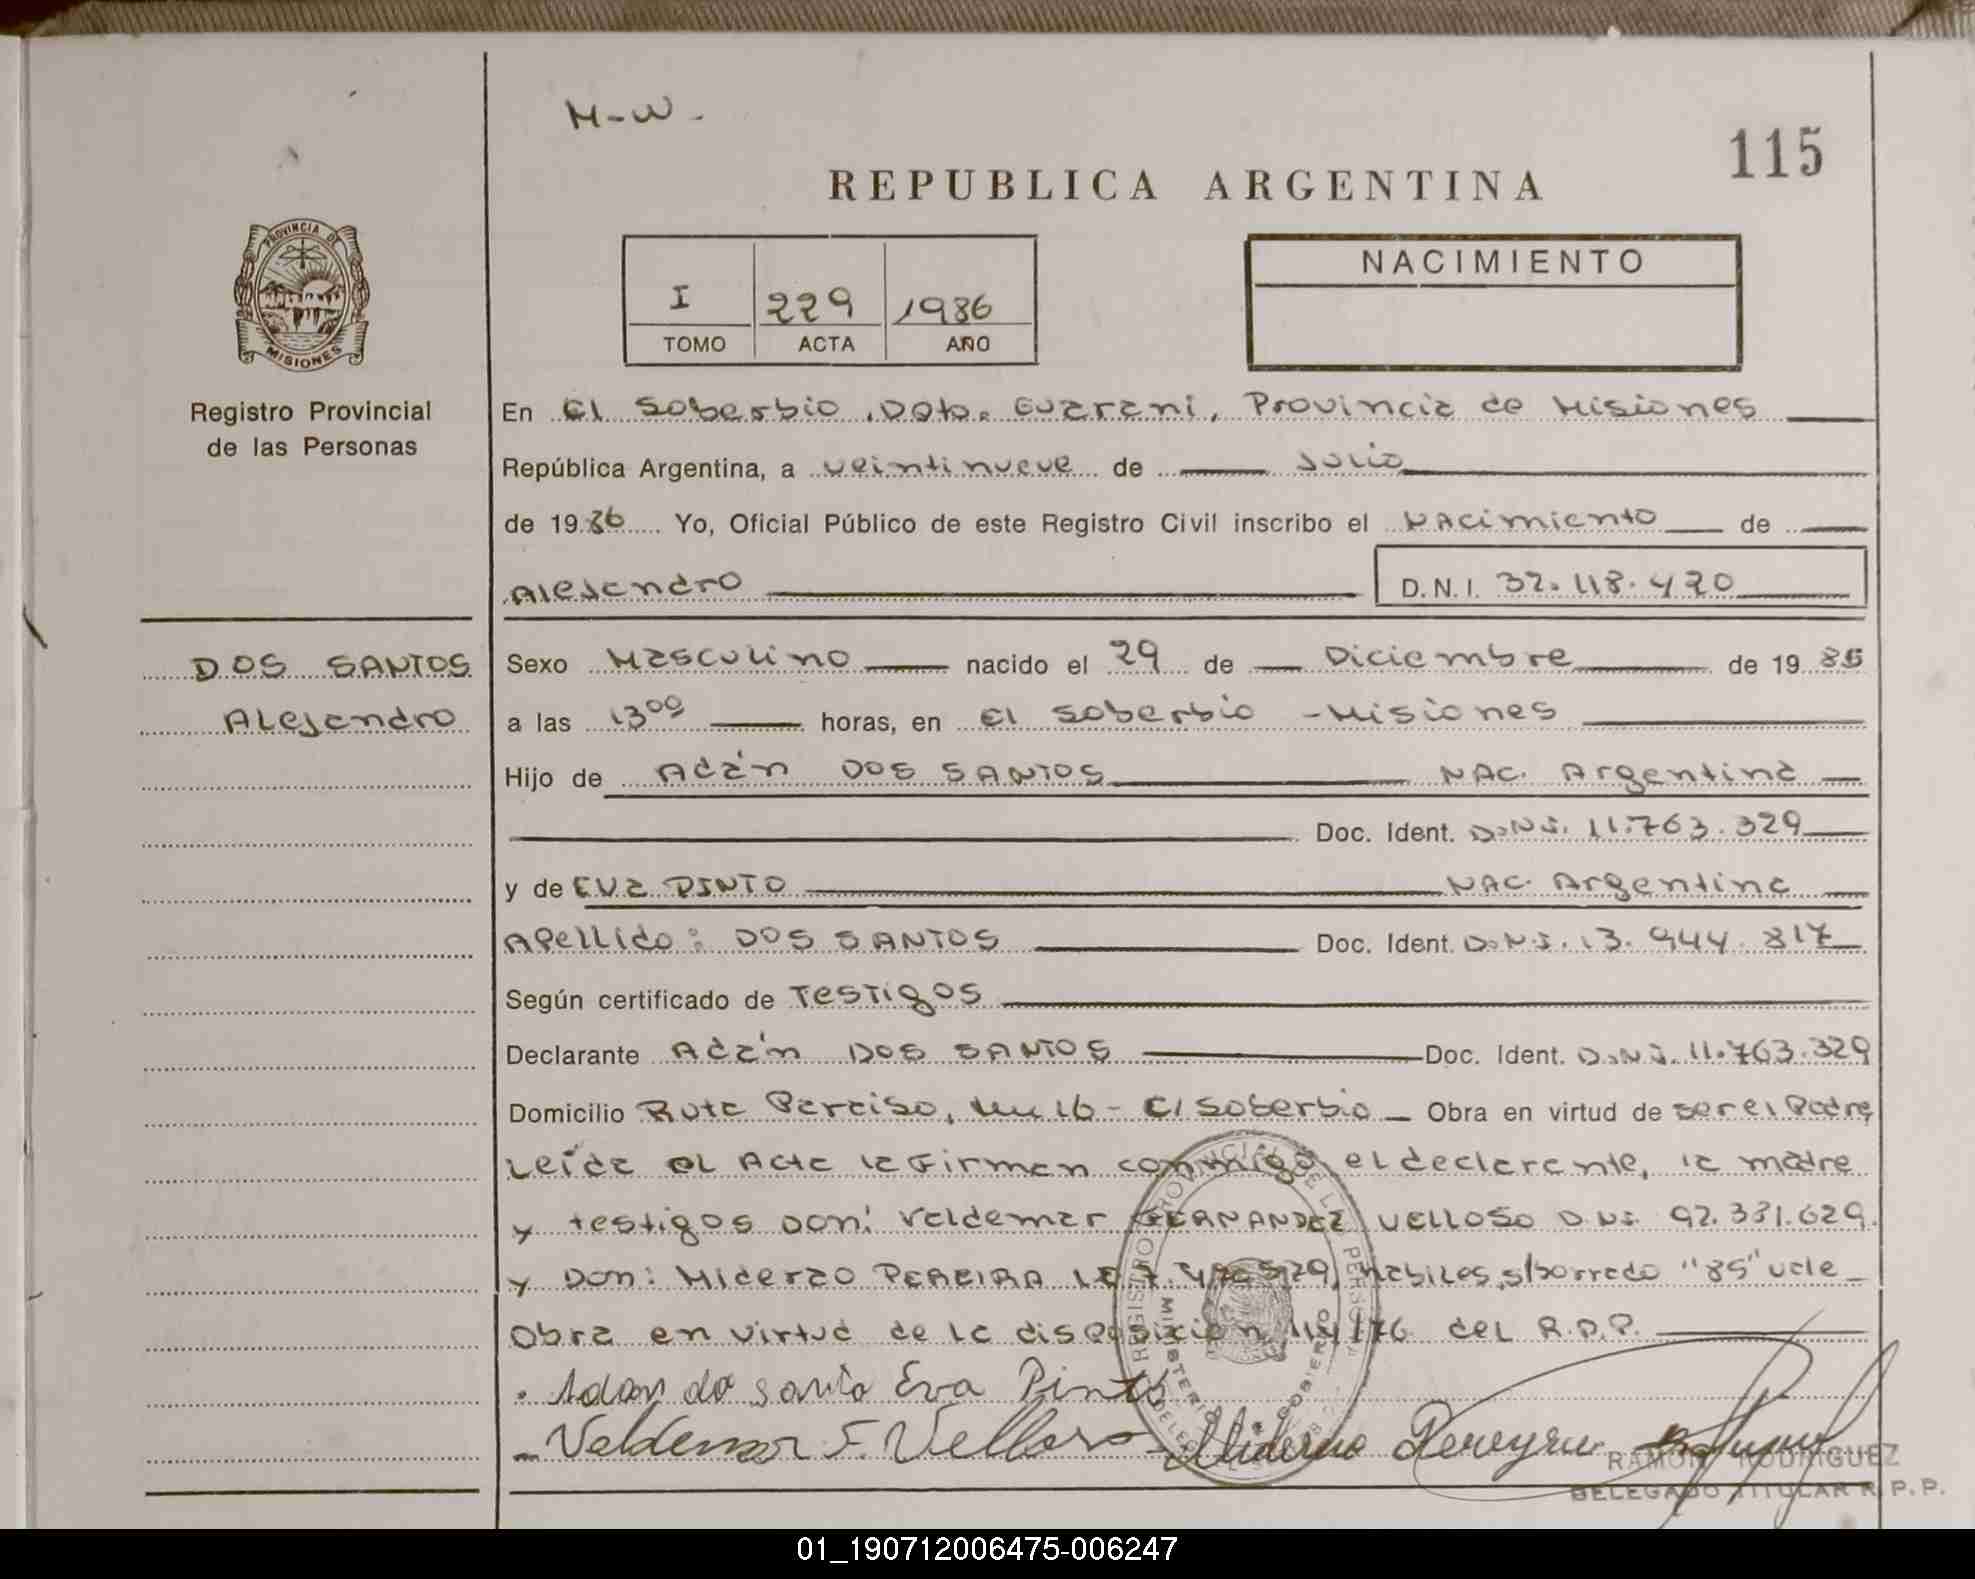 M-W-
115
REPUBLICA ARGENTINA
PROVINCIA DE
MISIONES
Registro Provincial
de las Personas
I 229 1986
TOMO ACTA AÑO
NACIMIENTO
En El Soberbio, Dpto. Guarani, Provincia de Misiones
República Argentina, a veintinueve de Julio
de 1986 Yo, Oficial Público de este Registro Civil inscribo el Nacimiento de
Alejandro D.N.I. 32.118.420
DOS SANTOS
Alejandro
Sexo Masculino nacido el 29 de Diciembre de 1985
a las 13 00 horas, en El Soberbio - Misiones
Hijo de Adán DOS SANTOS NAC. Argentina
Doc. Ident. D.N.I. 11.763.329
y de Eva PINTO NAC. Argentina
Apellido: DOS SANTOS Doc. Ident. D.N.I. 13.944.817
Según certificado de Testigos
Declarante Adán DOS SANTOS Doc. Ident. D.N.I. 11.763.329
Domicilio Ruta Paraiso, km 16 - El Soberbio Obra en virtud de ser el Padre
Leída el Acta la Firman conmigo el declarante, la madre
y testigos Don: Valdemar FERNANDEZ VELLOSO D.N.I. 92.331.629
y Don: Miderzo PEREIRA L.E. 7. habiles, s/borrado "85" vale
Obra en virtud de la disposicion 114/76 del R.P.P.
Adan do santo Eva Pinto
Valdemar F. Velloso Miderzo Pereyra
RAMON RODRIGUEZ
DELEGADO TITULAR R.P.P.
01_190712006475-006247